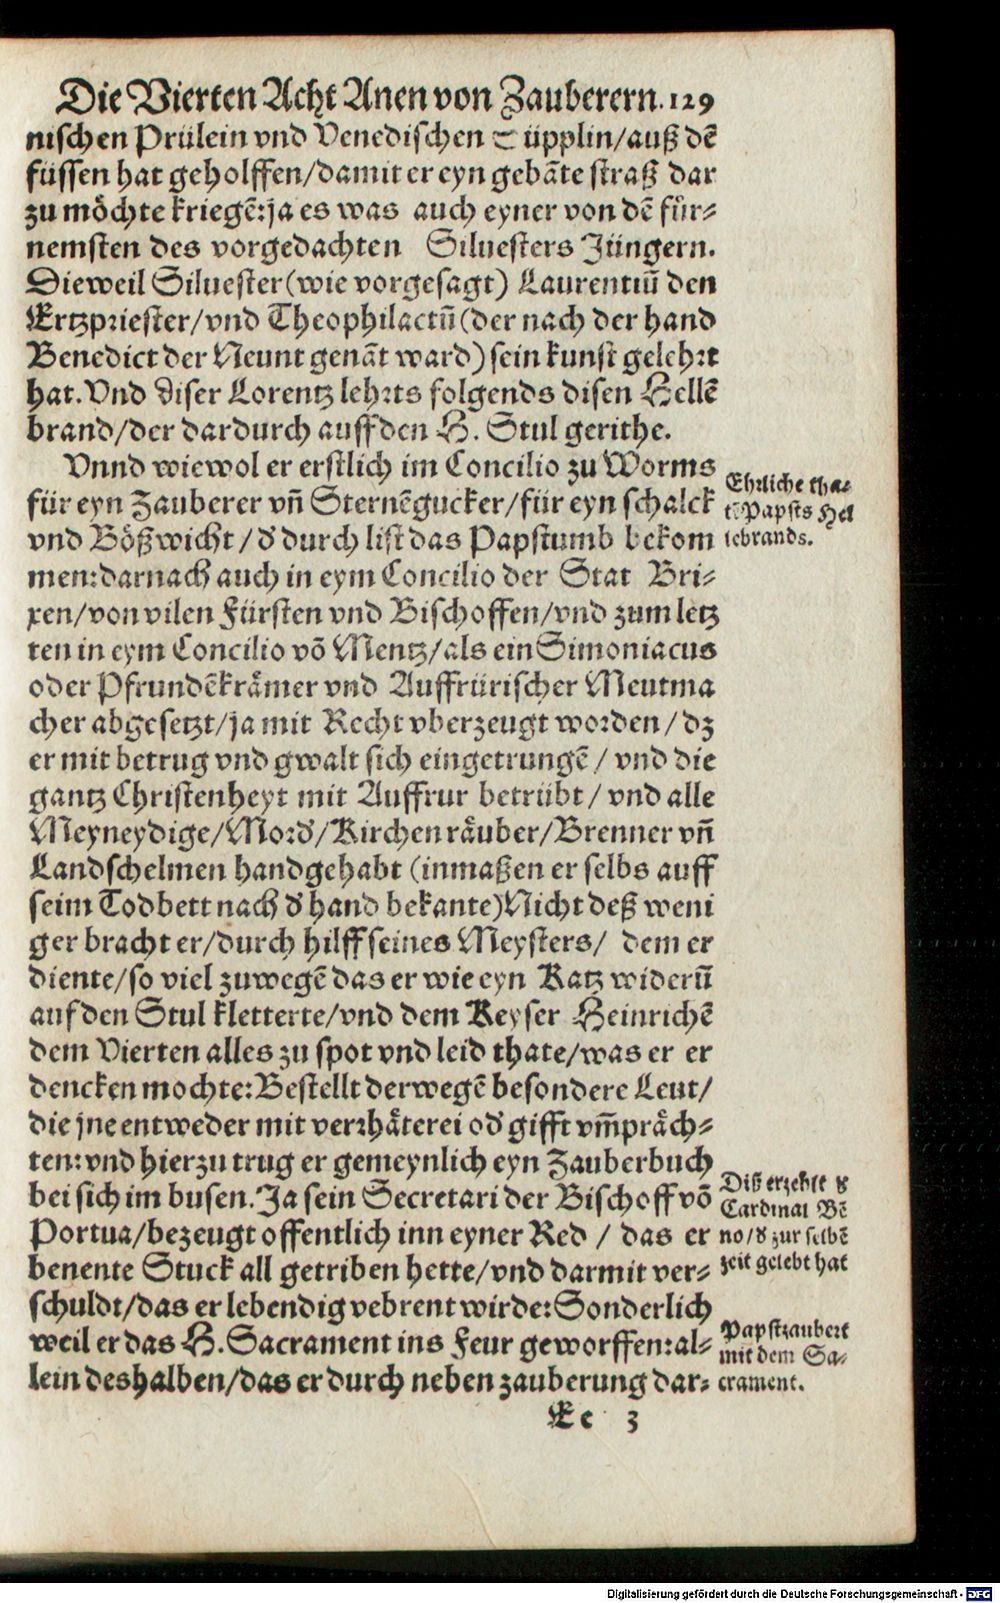 Die Vierten Acht Anen von Zauberern. 129
nischen Prülein vnd Venedischen Süpplin/auß dē
füssen hat geholffen/damit er eyn gebāte straß dar
zu möchte kriegē:ja es was auch eyner von dē für-
nemsten des vorgedachten Siluesters Jüngern.
Dieweil Siluester (wie vorgesagt) Laurentiū den
Ertzpriester/vnd Theophilactū (der nach der hand
Benedict der Neunt genāt ward) sein kunst gelehrt
hat. Vnd diser Lorentz lehrts folgends disen Hellē
brand/der dardurch auff den H. Stul gerithe.
Vnnd wiewol er erstlich im Concilio zu Worms
für eyn Zauberer vñ Sternēgucker/für eyn schalck
vnd Bößwicht/d' durch list das Papstumb bekom
men:darnach auch in eym Concilio der Stat Bri-
xen/von vilen Fürsten vnd Bischoffen/vnd zum letz
ten in eym Concilio vō Mentz/als ein Simoniacus
oder Pfrundēkrämer vnd Auffrürischer Meutma
cher abgesetzt/ja mit Recht vberzeugt worden/dz
er mit betrug vnd gwalt sich eingetrungē/vnd die
gantz Christenheyt mit Auffrur betrübt/vnd alle
Meyneydige/Mord'/Kirchenräuber/Brenner vñ
Landschelmen handgehabt (inmaßen er selbs auff
seim Todbett nach d' hand bekante) Nicht deß weni
ger bracht er/durch hilff seines Meysters/ dem er
diente/so viel zuwegē das er wie eyn Katz widerū
auf den Stul kletterte/vnd dem Keyser Heinrichē
dem Vierten alles zu spot vnd leid thate/was er er
dencken mochte:Bestellt derwegē besondere Leut/
die jne entweder mit verrhäterei od' gifft vm̄präch-
ten:vnd hierzu trug er gemeynlich eyn Zauberbuch
bei sich im busen. Ja sein Secretari der Bischoff vō
Portua/bezeugt offentlich inn eyner Red / das er
benente Stuck all getriben hette/vnd darmit ver-
schuldt/das er lebendig vebrent wirde:Sonderlich
weil er das H. Sacrament ins Feur geworffen:al-
lein deshalben/das er durch neben zauberung dar-
Ee 3
Ehrliche tha-
tē Papsts Hel
lebrands.
Diß erzehlt d'
Cardinal Bē
no/d' zur selbē
zeit gelebt hat
Papstzaubert
mit dem Sa-
crament.
Digitalisierung gefördert durch die Deutsche Forschungsgemeinschaft - DFG